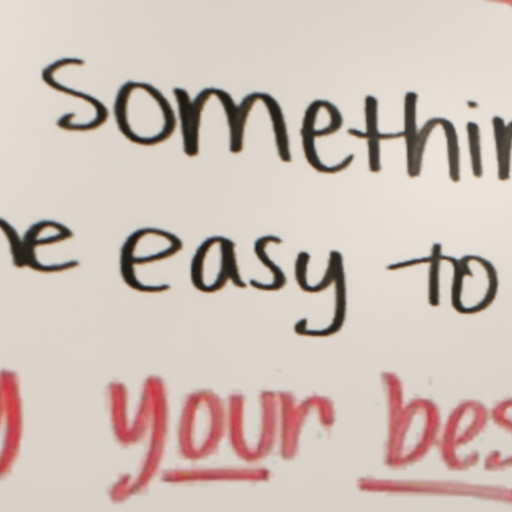 Somethin
he easy to
y your bes